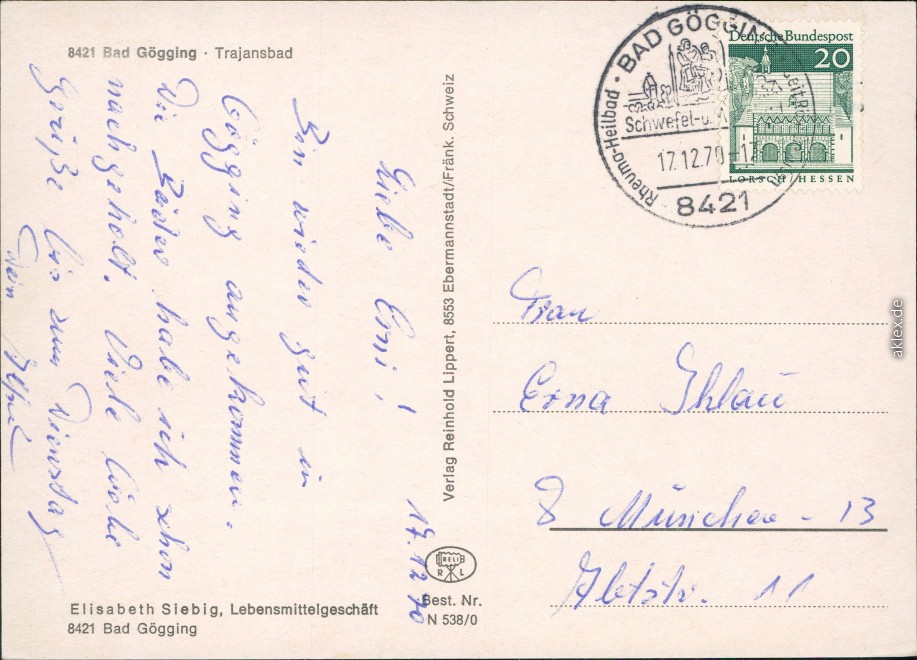 8421 Bad Gögging · Trajansbad
17.12.70
Liebe Erni!
Bin wieder gut in
Gögging angekommen.
Die Bäder habe ich schon
nachgeholt. Viele liebe
Grüße bis zum Dienstag
Dein
Elisabeth Siebig, Lebensmittelgeschäft
8421 Bad Gögging
Verlag Reinhold Lippert, 8553 Ebermannstadt/Fränk. Schweiz
BELI
R L
Best. Nr.
N 538/0
Rheuma-Heilbad · BAD GÖGGING
Schwefel-u.
17.12.70-17
8421
Deutsche Bundespost
20
LORSCH/HESSEN
Frau
Erna Ihlau
8 München - 13
Abtstr. 11
aklex.de